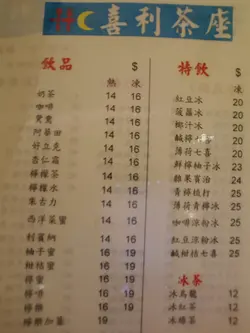 喜利茶座
飲品 $
熱 凍
奶茶 14 16
咖啡 14 16
鴛鴦 14 16
阿華田 14 16
好立克 14 16
杏仁霜 14 16
檸檬茶 14 16
檸檬水 14 16
朱古力 14 16
西洋菜蜜 14 16
利賓納 14 16
柚子蜜 16 19
柑桔蜜 16 19
檸蜜 16 19
檸啡 16 19
檸樂 16 19
檸樂加薑 19
特飲 $
紅豆冰 20
菠蘿冰 20
椰汁冰 20
鹹檸七喜 20
薄荷七喜 20
鮮檸柚子冰 23
雜果賓治 24
青檸梳打 25
薄荷青檸冰 25
咖啡涼粉冰 25
紅豆涼粉冰 25
鹹柑桔七喜 25
冰茶 $
冰烏龍 12
冰紅茶 12
12